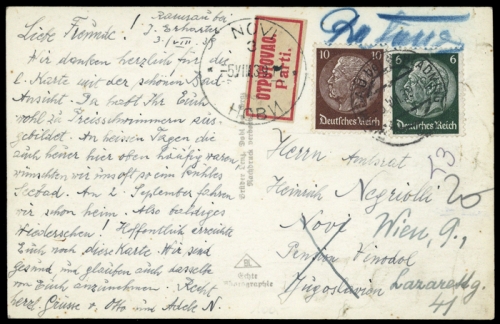 Ramsau bei
J. Erharter
3./VIII. 38
Liebe Freunde!
Wir danken herzlich für die
l. Karte mit der schönen Bad-
Ansicht. Da habt Ihr Euch
wohl zu Freischwimmern aus-
gebildet. An heissen Tagen die
auch heuer hier oben häufig waren
wünschten wir uns oft so ein kühles
Seebad. Am 2. September fahren
wir schon heim. Also baldiges
Wiedersehen! Hoffentlich erreicht
Euch noch diese Karte. Wir sind
gesund und glauben auch dasselbe
von Euch anzunehmen. Recht
herzl. Grüsse v. Otto und Adele N.
NOVI
НОВИ
OTPUTOVAO
Parti.
Echte
Photographie
10 10
Deutsches Reich
6 6
Deutsches Reich
Herrn Amtsrat
Heinrich Negriolli
Novi
Wien, 9.,
Pension Vinodol
Jugoslavien
Lazarettg.